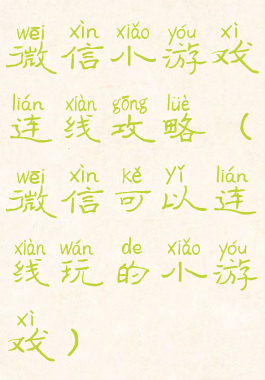 wēi xìn xiǎo yóu xì
微信小游戏
lián xiàn gōng lüè
连线攻略（
wēi xìn kě yǐ lián
微信可以连
xiàn wán de xiǎo yóu
线玩的小游
xì
戏）